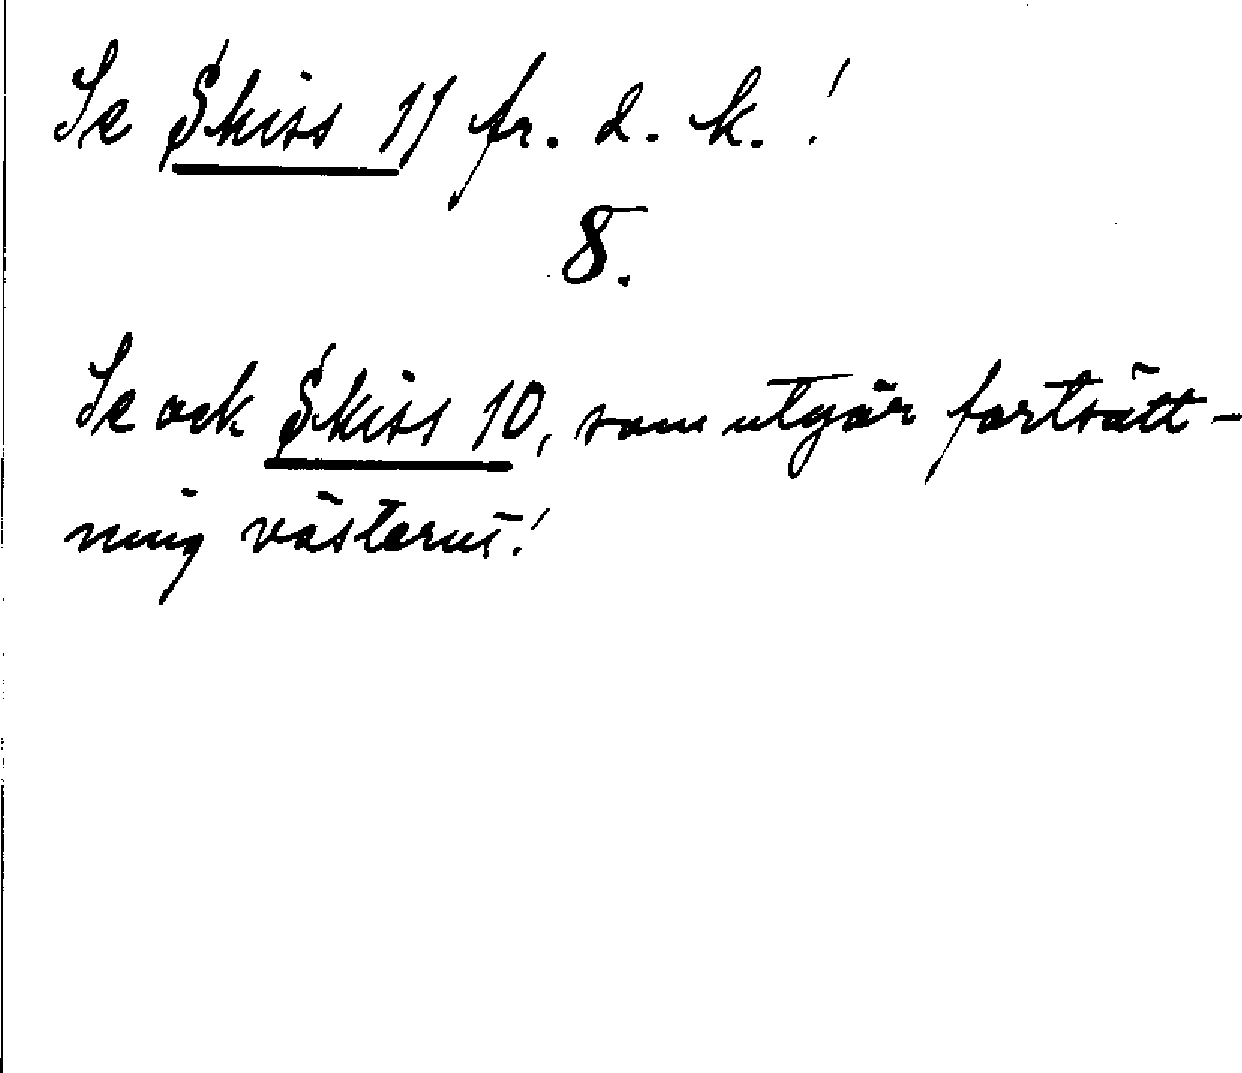 Se Skiss 11 fr. d. k. !
8.
Se ock Skiss 10, som utgör fortsätt-
ning västerut!